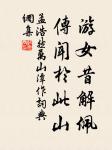 游女昔解佩
傳聞於此山
孟浩然萬山潭作詞典
網集